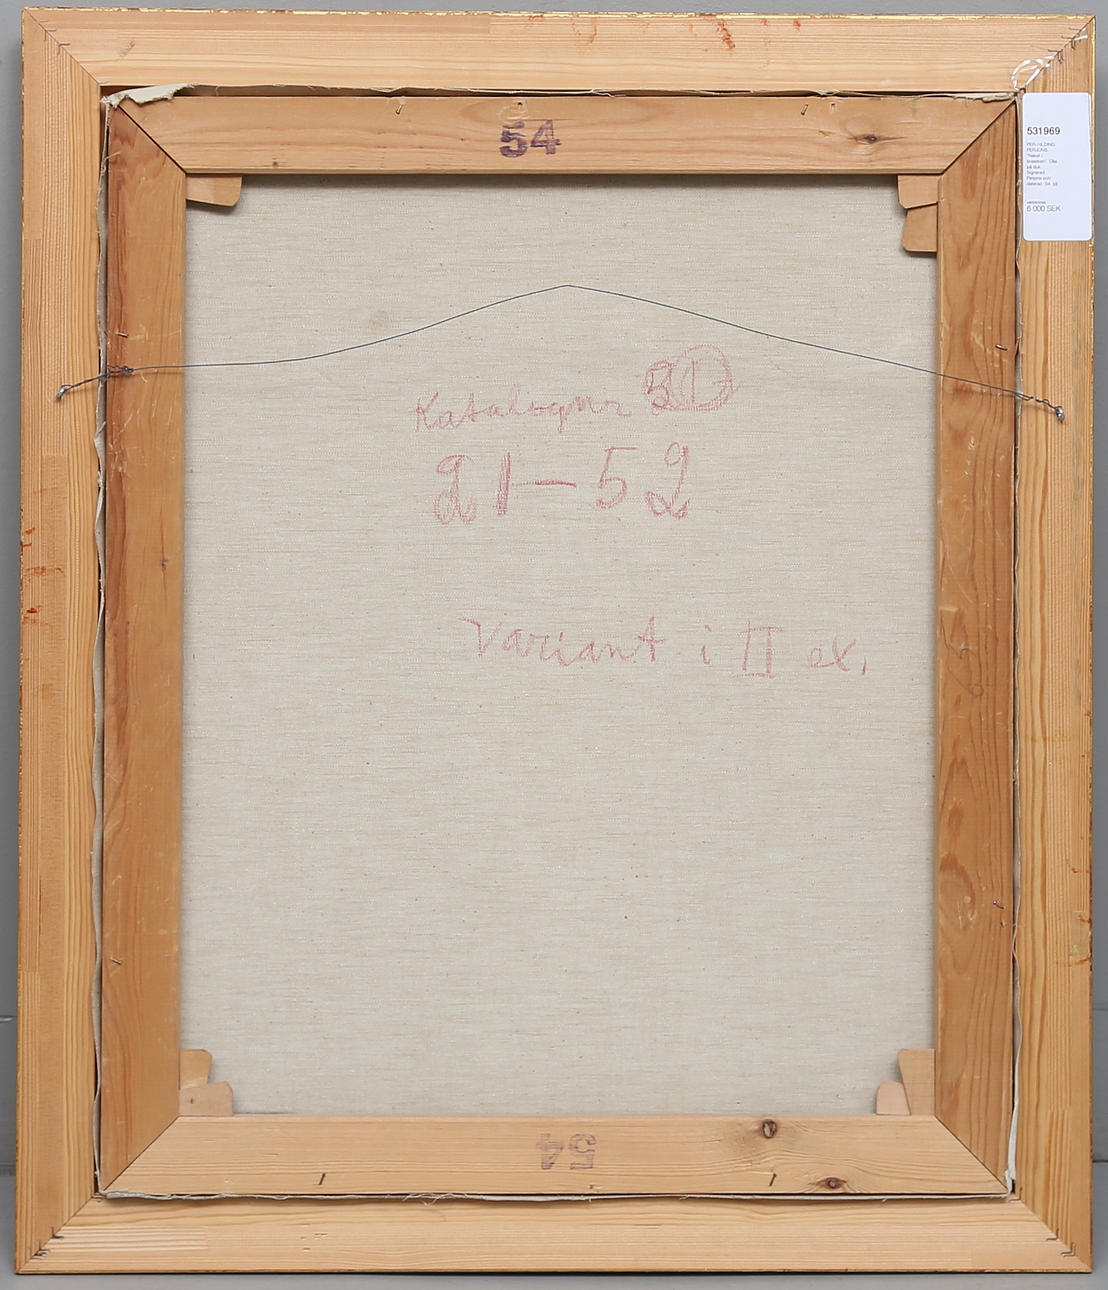 54
531969
PER HILDING
PERJONS
på duk.
Signerad
Perjons och
daterad -54 på
6 000 SEK
Katalognr
21–52
Variant i II ex.
54